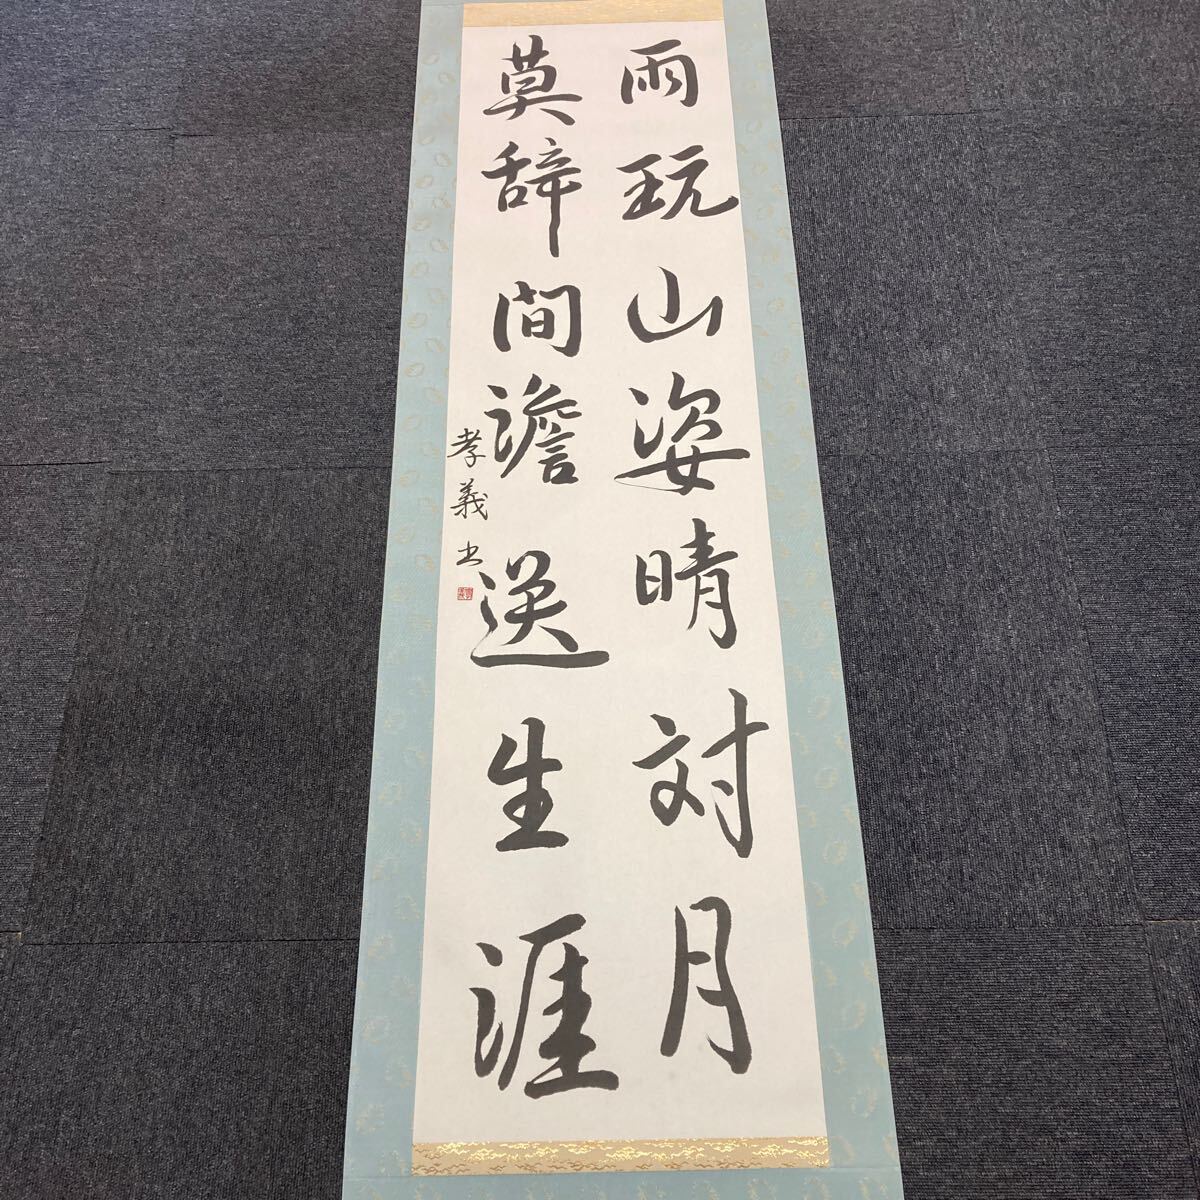 雨玩山姿晴対月
莫辞間澹送生涯
孝義书